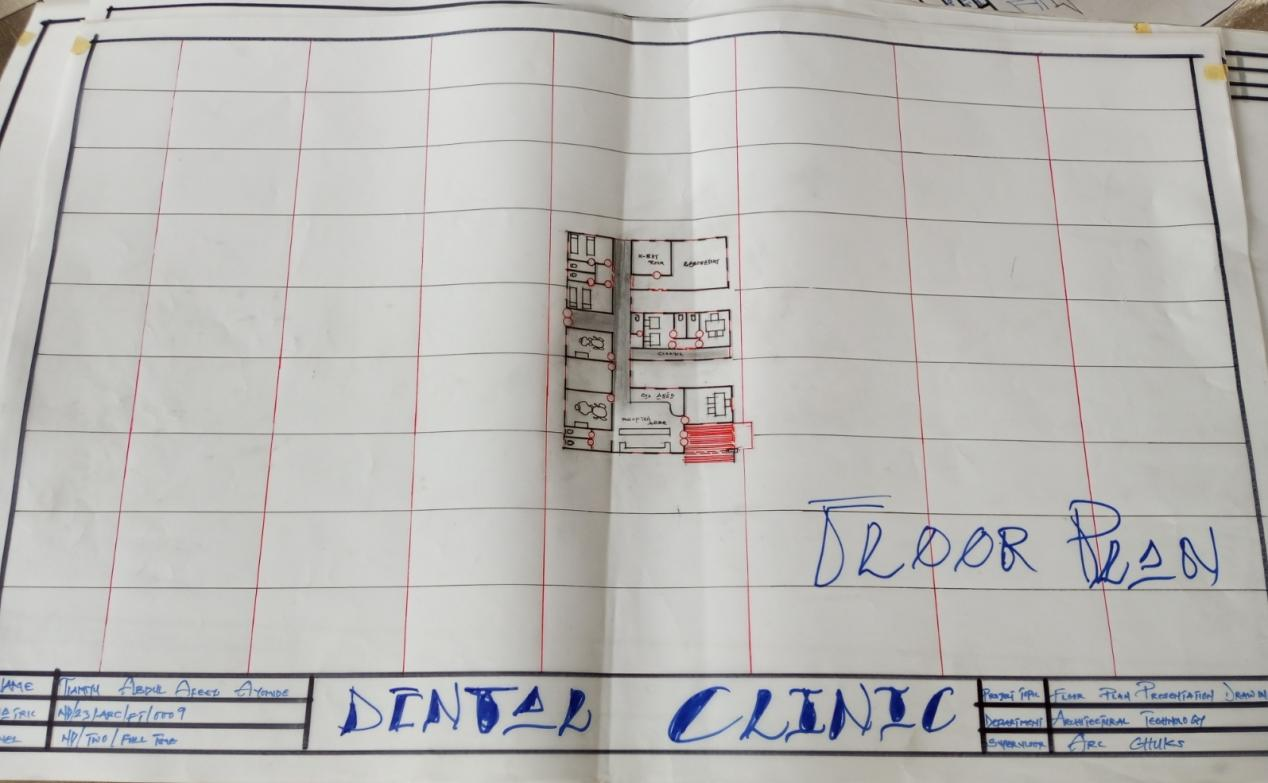 X-RAY
ROOM
LABORATORY
CORRIDOR
RECEPTION
AREA
FLOOR PLAN
NAME
ABDUL AFEEZ AYOMIDE
MATRIC
ND/23/ARC/FT/0009
LEVEL
ND/TWO/FULL TIME
DENTAL CLINIC
PROJECT TOPIC
FLOOR PLAN PRESENTATION DRAWIN
DEPARTMENT
ARCHITECTURAL TECHNOLOGY
SUPERVISOR
ARC CHUKS